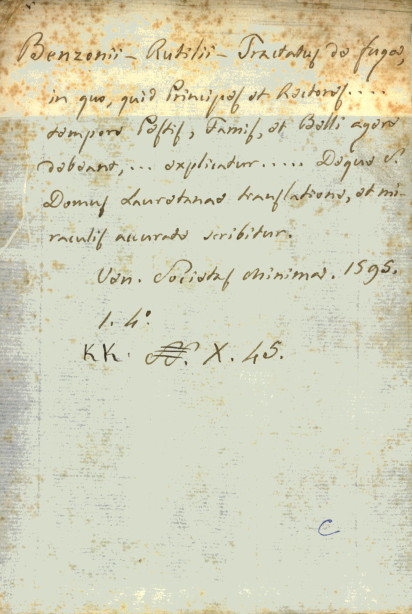 Benzonii - Rutilii - Tractatus de fuga,
in quo, quid Principes et Rectores....
tempore Pestis, Famis, et Belli agere
debeant,... explicatur..... Deque S.
Domus Lauretanae translatione, et mi-
raculis accurate scribitur.
Ven. Societas Minima. 1595.
1. 4º.
KK. X. 45.
C